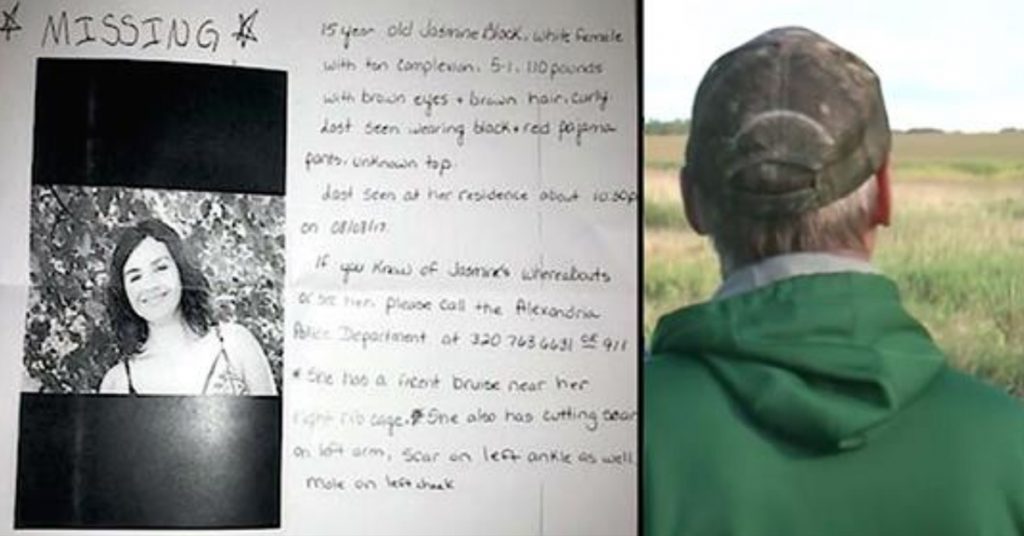 MISSING
15 year old Jasmine Block, white female
with tan complexion, 5-1, 110 pounds
with brown eyes + brown hair, curly
Last seen wearing black + red pajama
pants, unknown top.
Last seen at her residence about 10:30p
on 08/08/17.
If you know of Jasmine's whereabouts
or see her, please call the Alexandria
Police Department at 320 763 6631 or 911
* She has a recent bruise near her
right rib cage. * She also has cutting scar
on left arm, scar on left ankle as well,
mole on left cheek